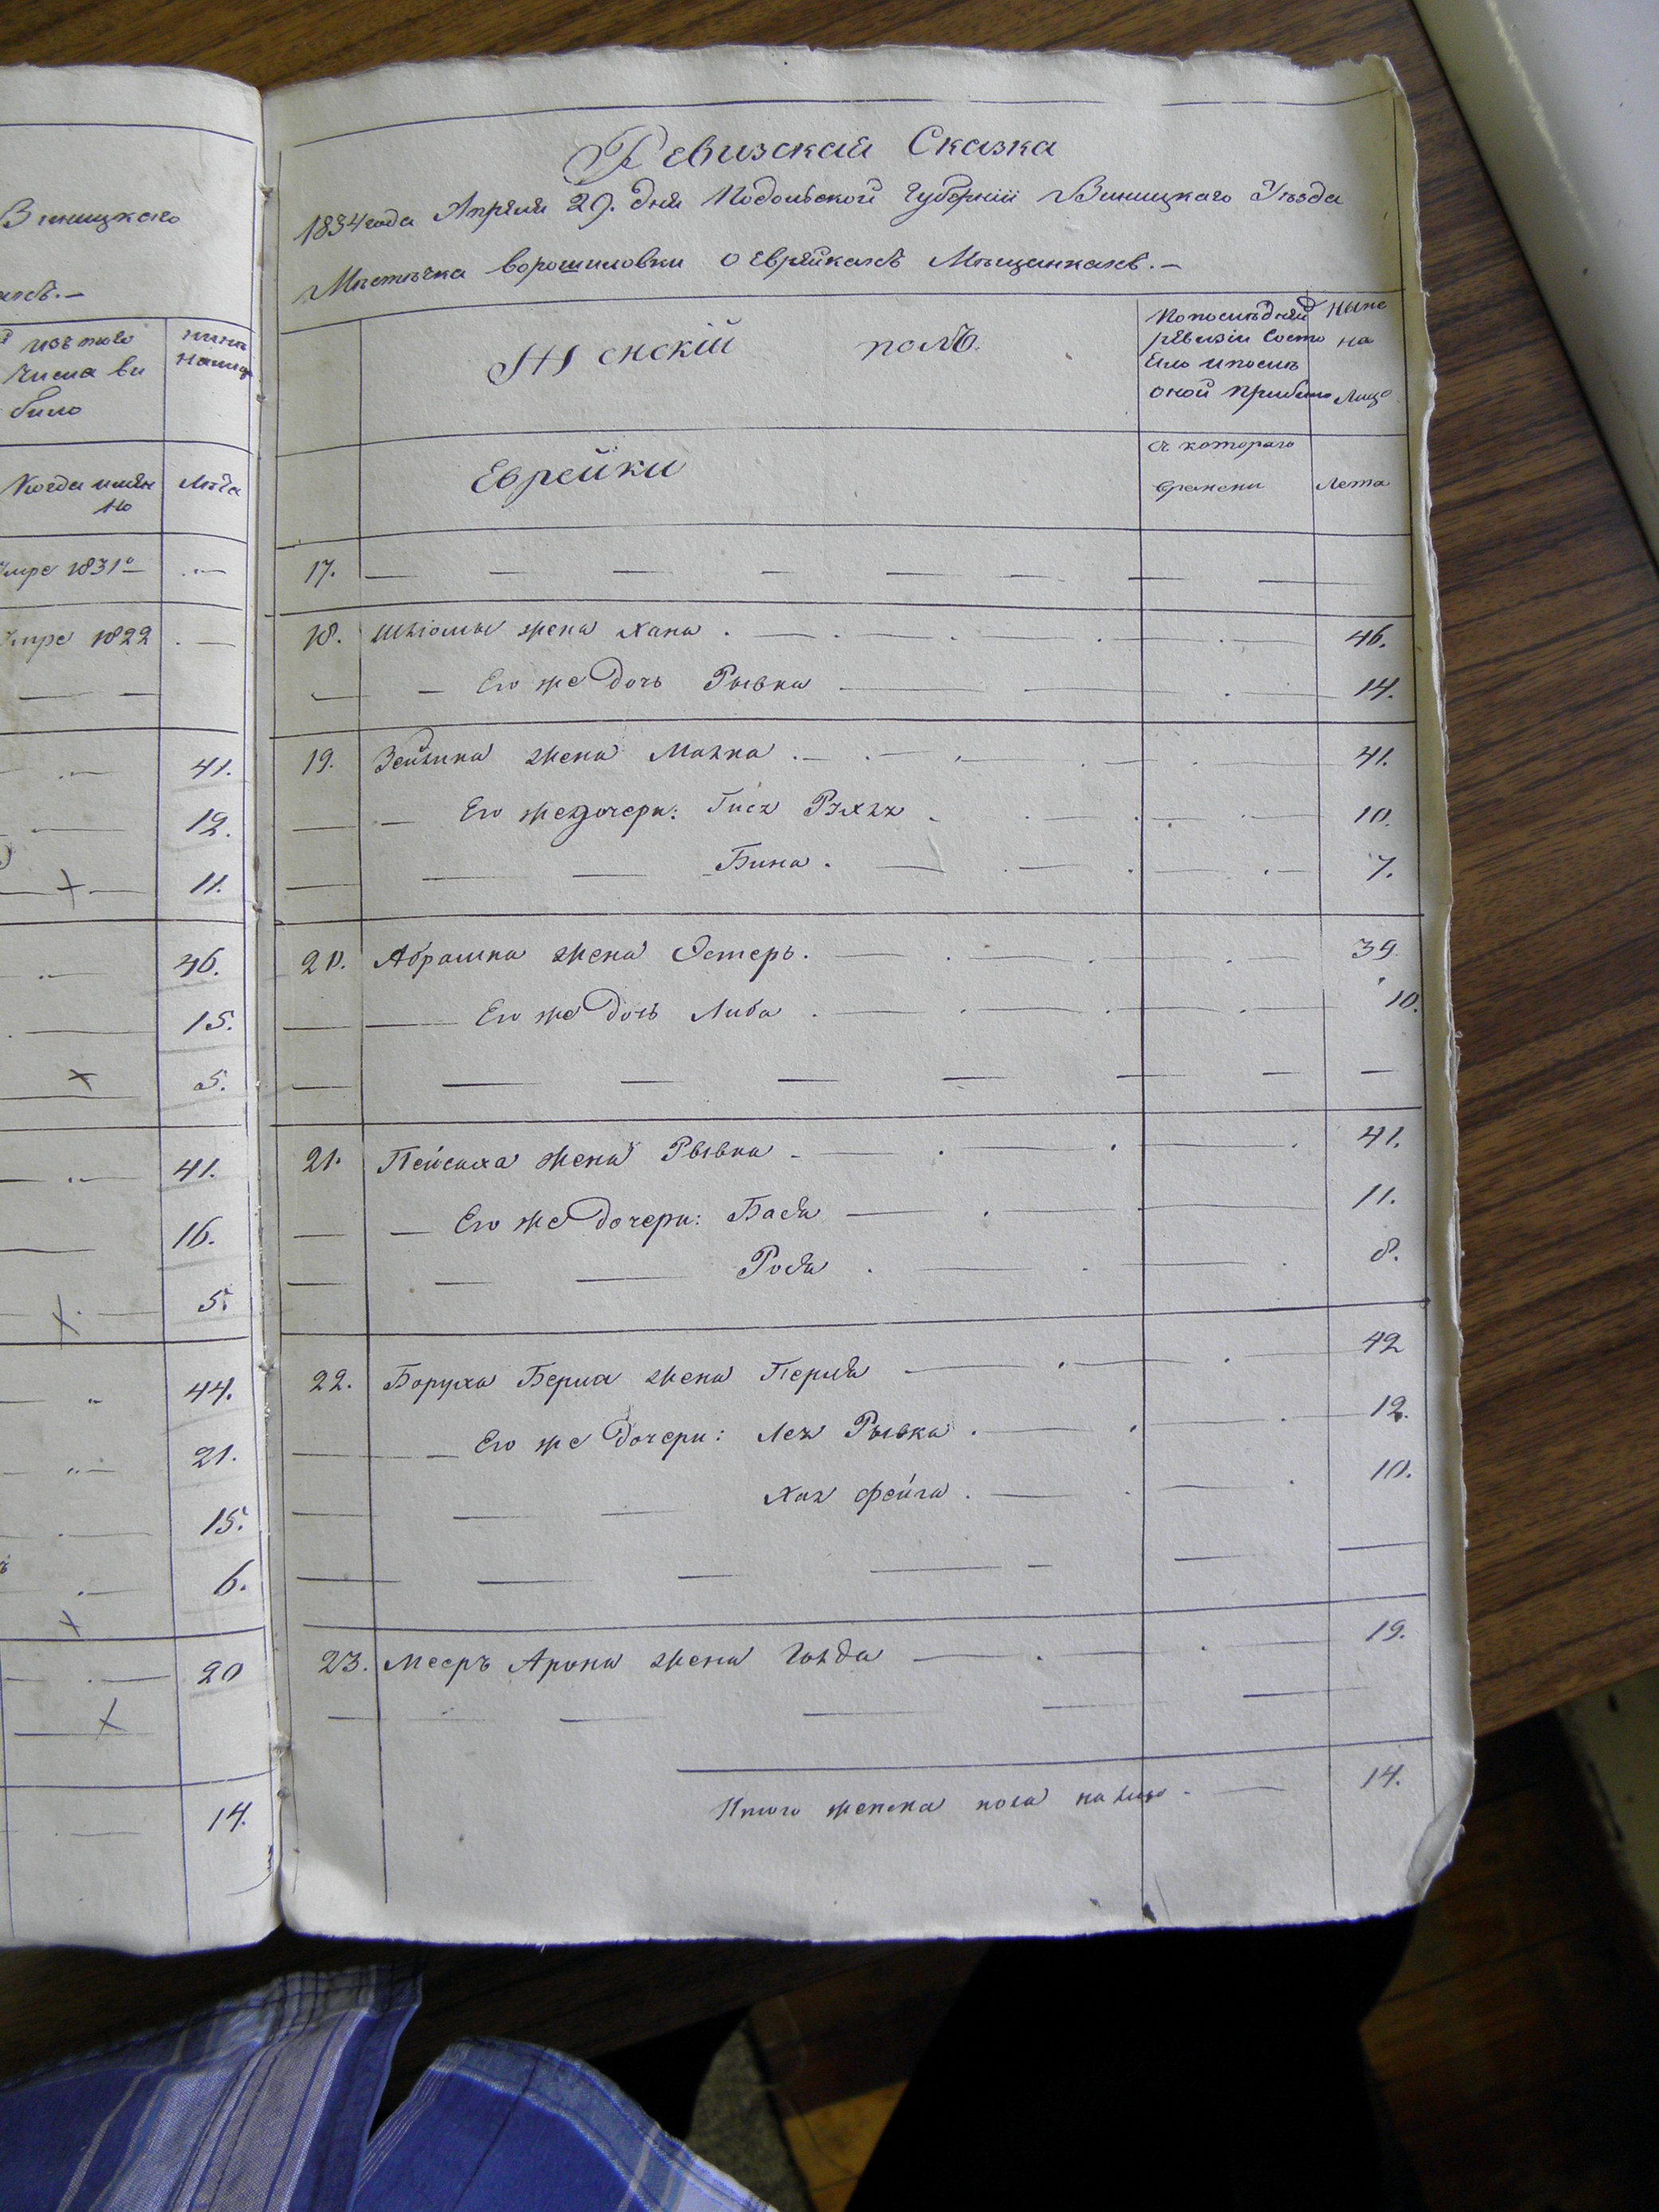 Винницкаго
изъ того
числа вы
было
нынѣ
налицо
Когда имен
но
Лѣта
Умре 1831º
Умре 1822
41.
12.
11.
46.
15.
5.
41.
16.
5.
44.
21.
15.
6.
20
14.
Ревизская Сказка
1834 года Апреля 29. дня Подольской Губернїи Виницкаго Уѣзда
Мѣстечка Ворошиловки О Еврейкахъ Мѣщанкахъ. —
Женскій полъ.
По последней
ревизіи состо
яло и после
оной прибыло
Ныне
на
Лицо
Еврейки
Съ котораго
времени
Лета
17.
18. Шліомы жена Хана . 46.
Его же дочь Рывка 14.
19. Зейлика жена Малка . 41.
Его же дочери: Гися Рухля 10.
Бина . 7.
20. Абрамка жена Эстеръ. 39.
Его же дочь Либа . 10.
21. Пейсаха жена Рывка 41.
Его же дочери: Бася 11.
Рося . 8.
22. Боруха Берка жена Перля 42
Его же дочери: Лея Рывка . 12.
Хая Фейга . 10.
23. Мееръ Арона жена Голда 19.
Итого женска пола на лицо 14.